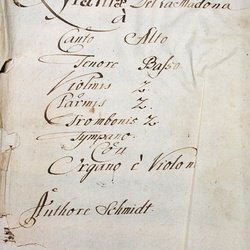 Del la Madona
à
Canto Alto
Tenore Basso
Violinis 2.
Clarinis 2.
Trombonis 2
Tympano
Con
Organo è Violon
Authore Schmidt